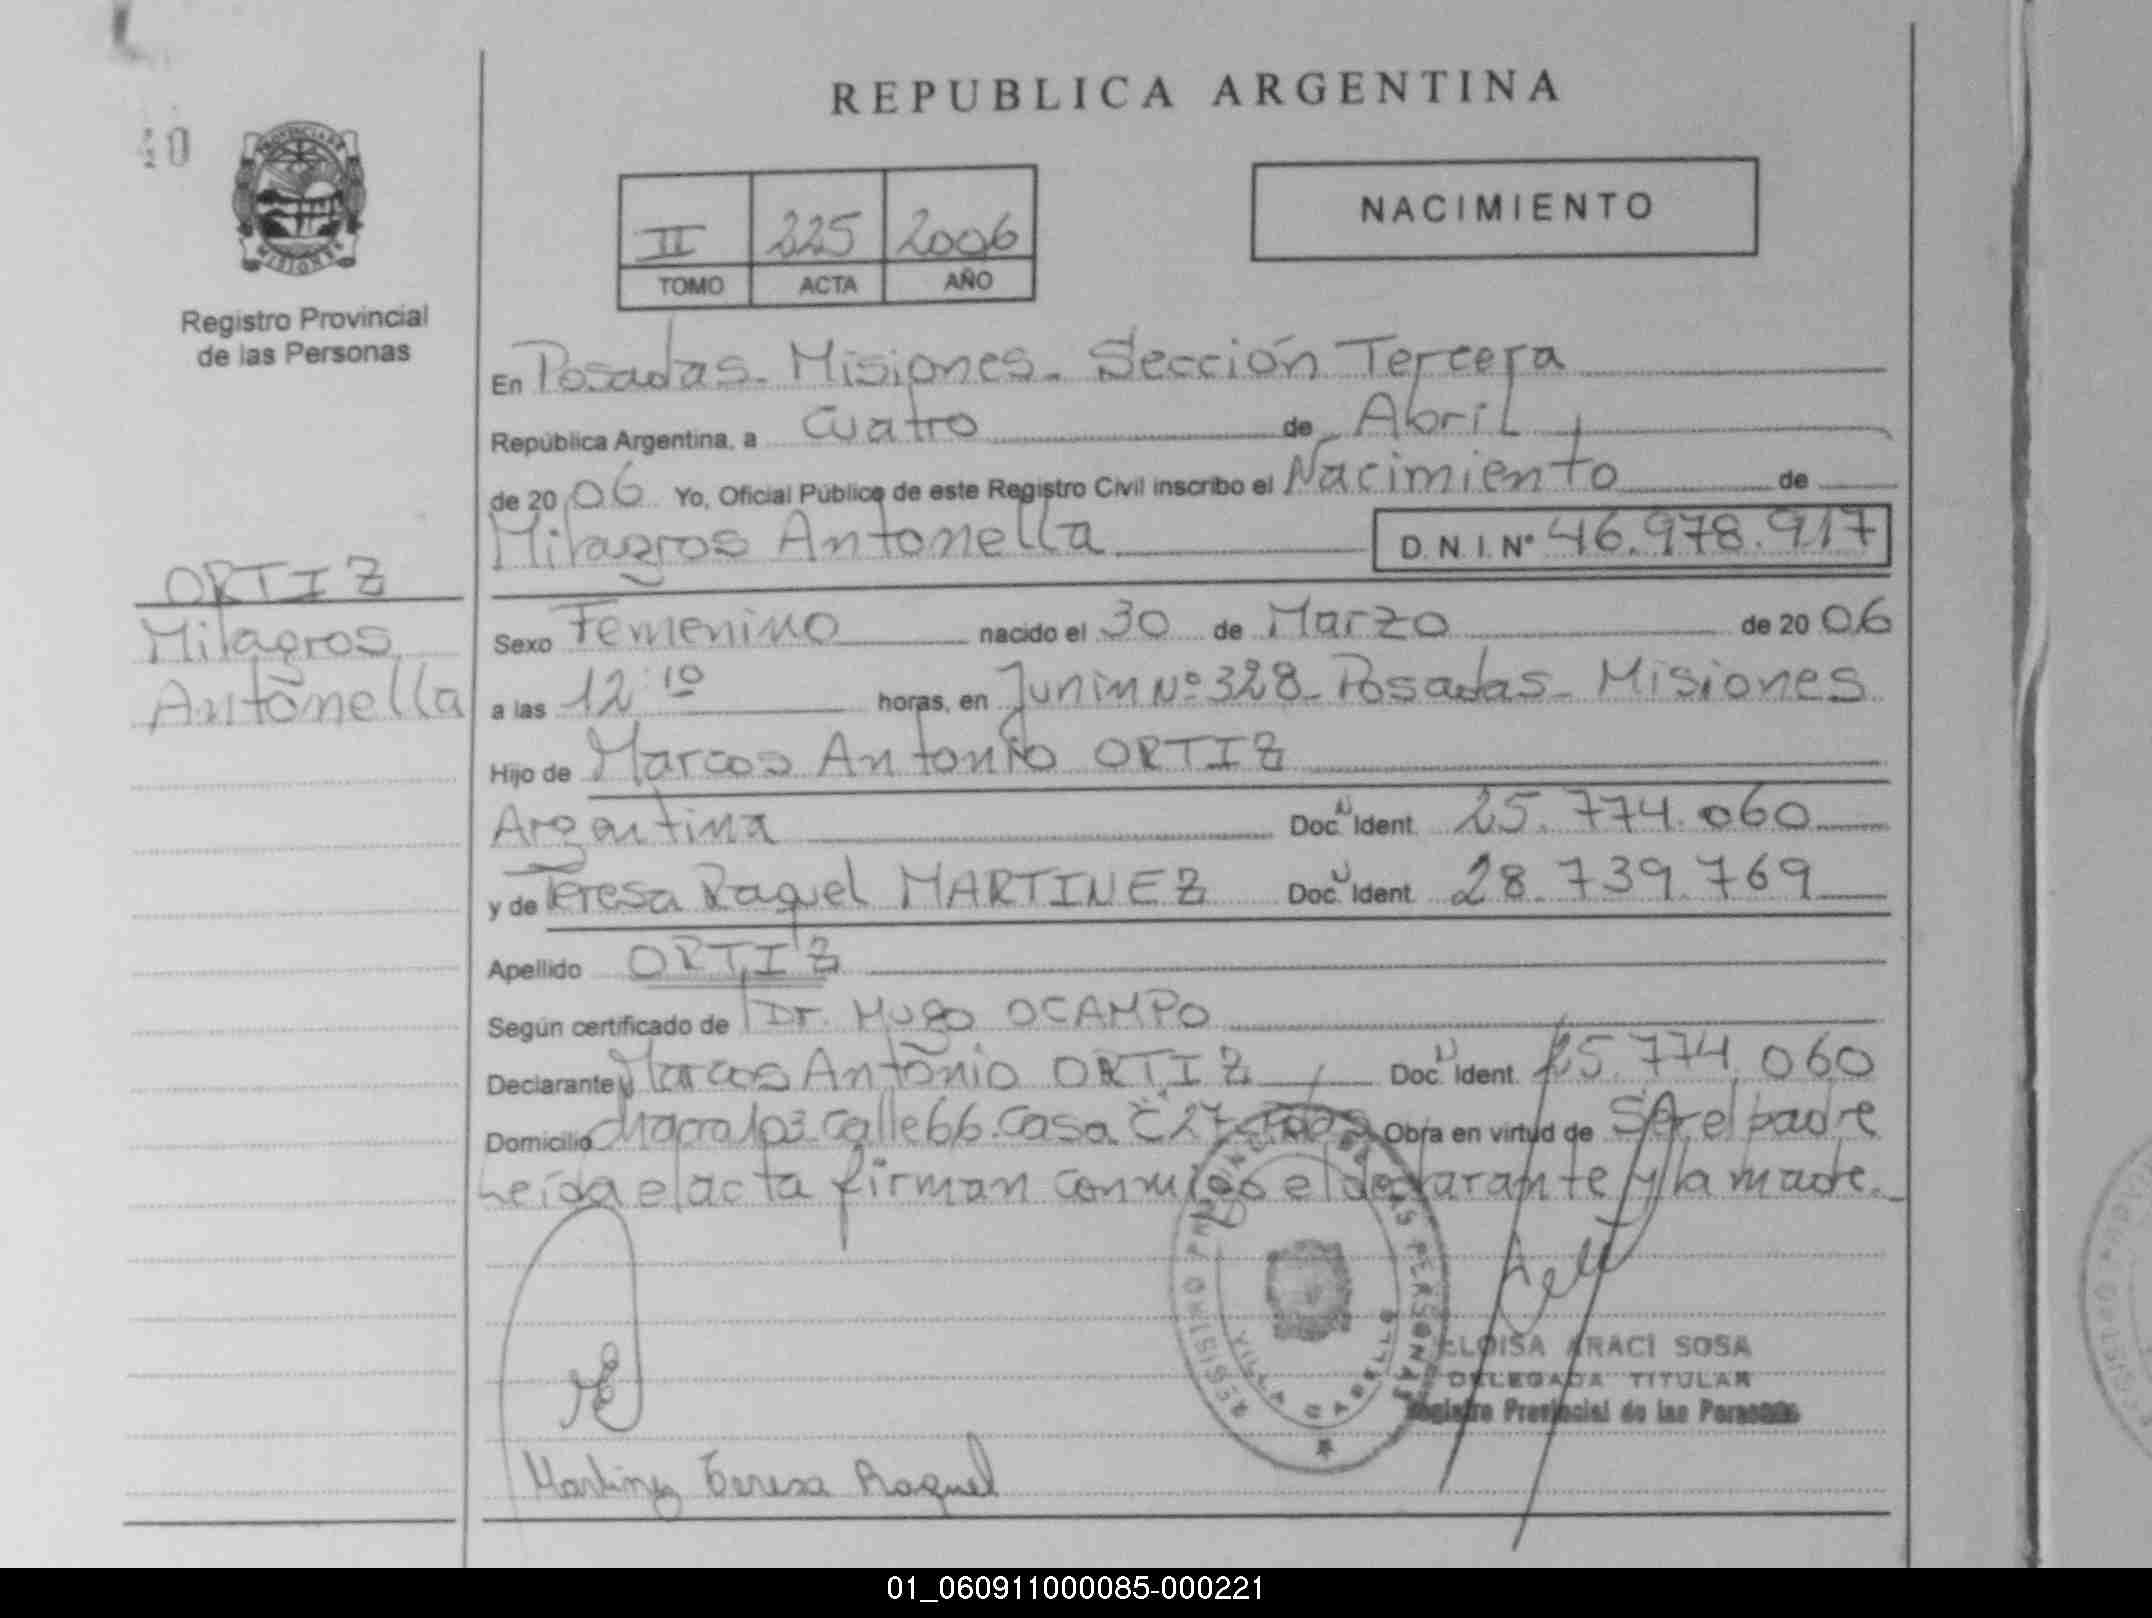 REPUBLICA ARGENTINA
40
PROVINCIA DE
MISIONES
Registro Provincial
de las Personas
II 225 2006
TOMO ACTA AÑO
NACIMIENTO
En Posadas - Misiones - Sección Tercera
República Argentina, a Cuatro de Abril
de 20 06 Yo, Oficial Público de este Registro Civil inscribo el Nacimiento de
Milagros Antonella D.N.I. Nº 46.978.917
ORTIZ
Milagros
Antonella
Sexo Femenino nacido el 30 de Marzo de 20 06
a las 12:10 horas, en Junin Nº 328 - Posadas - Misiones
Hijo de Marcos Antonio ORTIZ
Argentina Doc. Ident. 25.774.060
y de Teresa Raquel MARTINEZ Doc. Ident. 28.739.769
Apellido ORTIZ
Según certificado de Dr. Hugo OCAMPO
Declarante Marcos Antonio ORTIZ Doc. Ident. 25.774.060
Domicilio chacra 103 calle 66. Casa 27 Obra en virtud de Ser el padre
Leída el acta firman conmigo el declarante y la madre.
REGISTRO PROVINCIAL DE LAS PERSONAS
VILLA CABELLO
ELOISA ARACI SOSA
DELEGADA TITULAR
Registro Provincial de las Personas
Martinez Teresa Raquel
01_060911000085-000221